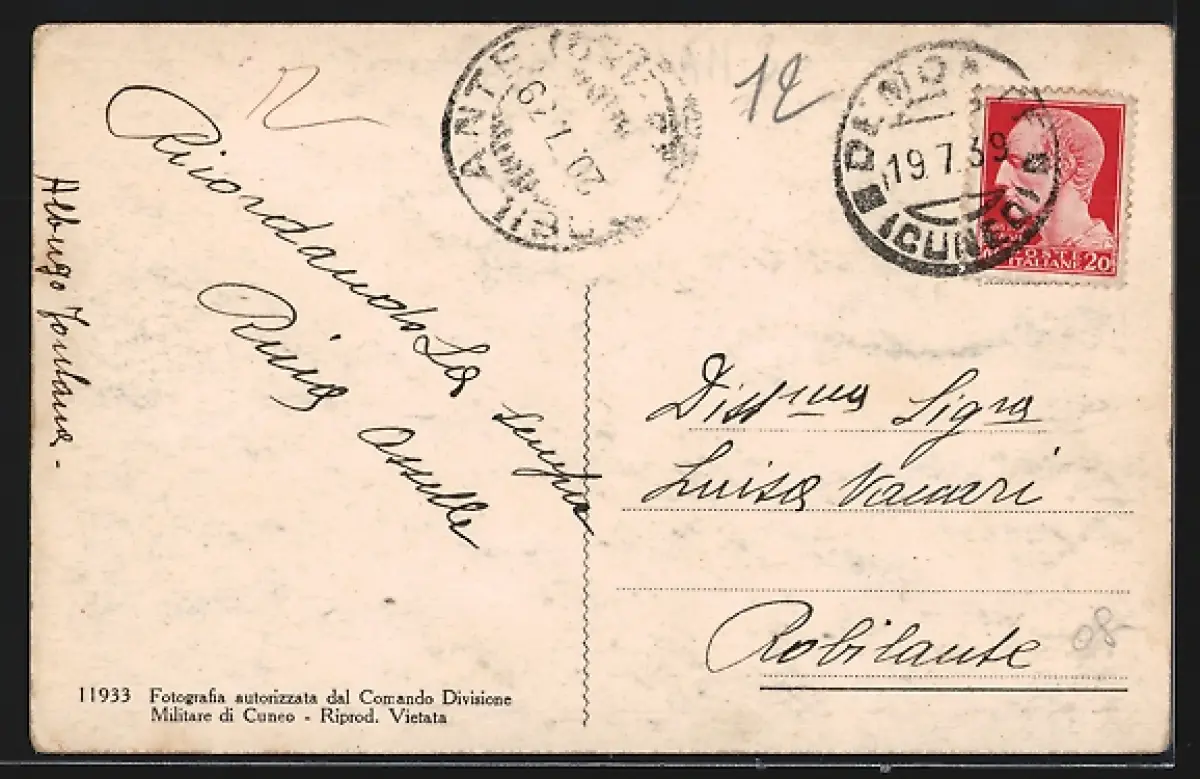 Ricordandola sempre
Rina Asselle
Albergo Fontana -
12
19.7.39
(CUNEO)
POSTE
ITALIANE 20
20.7.39
Dist ma Sigra
Luisa Vaccari
Robilante
08
11933 Fotografia autorizzata dal Comando Divisione
Militare di Cuneo - Riprod. Vietata